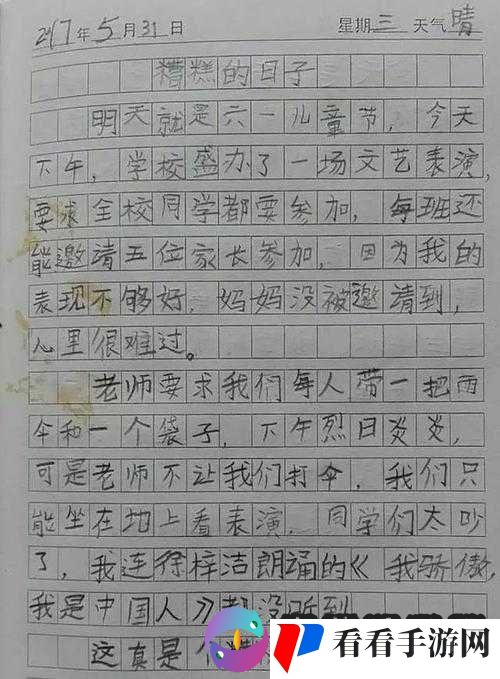 2017年5月31日 星期三 天气晴
糟糕的日子
明天就是六一儿童节，今天
下午，学校盛办了一场文艺表演，
要求全校同学都要参加，每班还
能邀请五位家长参加，因为我的
表现不够好，妈妈没被邀请到，
心里很难过。
老师要求我们每人带一把雨
伞和一个袋子，下午烈日炎炎，
可是老师不让我们打伞，我们只
能坐在地上看表演，同学们太吵
了，我连徐梓洁朗诵的《我骄傲，
我是中国人》都没听到
这真是个糟
看看手游网